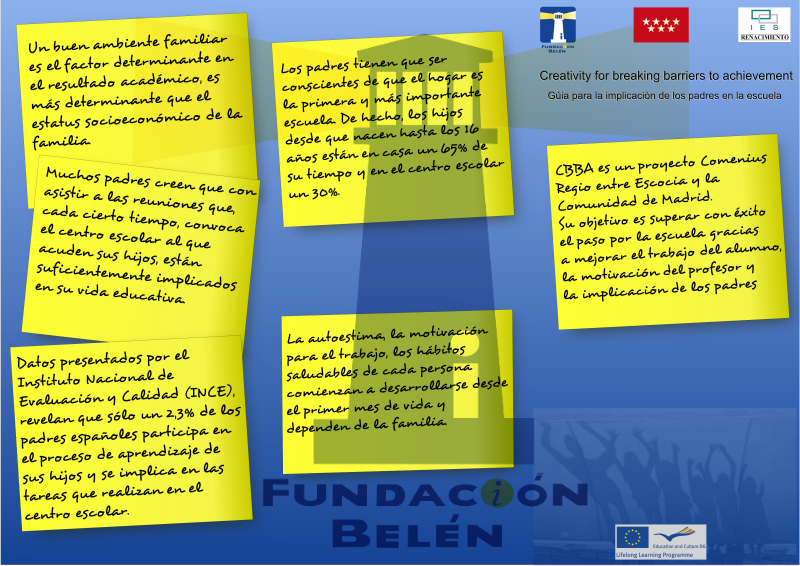 Un buen ambiente familiar
es el factor determinante en
el resultado académico, es
más determinante que el
estatus socioeconómico de la
familia.
Muchos padres creen que con
asistir a las reuniones que,
cada cierto tiempo, convoca
el centro escolar al que
acuden sus hijos, están
suficientemente implicados
en su vida educativa.
Datos presentados por el
Instituto Nacional de
Evaluación y Calidad (INCE),
revelan que sólo un 2,3% de los
padres españoles participa en
el proceso de aprendizaje de
sus hijos y se implica en las
tareas que realizan en el
centro escolar.
Los padres tienen que ser
conscientes de que el hogar es
la primera y más importante
escuela. De hecho, los hijos
desde que nacen hasta los 16
años están en casa un 65% de
su tiempo y en el centro escolar
un 30%.
La autoestima, la motivación
para el trabajo, los hábitos
saludables de cada persona
comienzan a desarrollarse desde
el primer mes de vida y
dependen de la familia.
FUNDACIÓN
BELÉN
FUNDACIÓN
BELÉN
IES
RENACIMIENTO
Creativity for breaking barriers to achievement
Gúia para la implicación de los padres en la escuela
CBBA es un proyecto Comenius
Regio entre Escocia y la
Comunidad de Madrid.
Su objetivo es superar con éxito
el paso por la escuela gracias
a mejorar el trabajo del alumno,
la motivación del profesor y
la implicación de los padres
Education and Culture DG
Lifelong Learning Programme